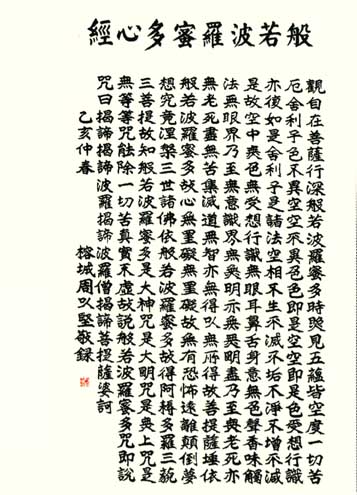 般若波羅蜜多心經
觀自在菩薩行深般若波羅蜜多時照見五蘊皆空度一切苦
厄舍利子色不異空空不異色色即是空空即是色受想行識
亦復如是舍利子是諸法空相不生不滅不垢不淨不增不減
是故空中無色無受想行識無眼耳鼻舌身意無色聲香味觸
法無眼界乃至無意識界無無明亦無無明盡乃至無老死亦
無老死盡無苦集滅道無智亦無得以無所得故菩提薩埵依
般若波羅蜜多故心無罣礙無罣礙故無有恐怖遠離顛倒夢
想究竟涅槃三世諸佛依般若波羅蜜多故得阿耨多羅三藐
三菩提故知般若波羅蜜多是大神咒是大明咒是無上咒是
無等等咒能除一切苦真實不虛故說般若波羅蜜多咒即說
咒曰揭諦揭諦波羅揭諦波羅僧揭諦菩提薩婆訶
乙亥仲春 榕城周以堅敬錄